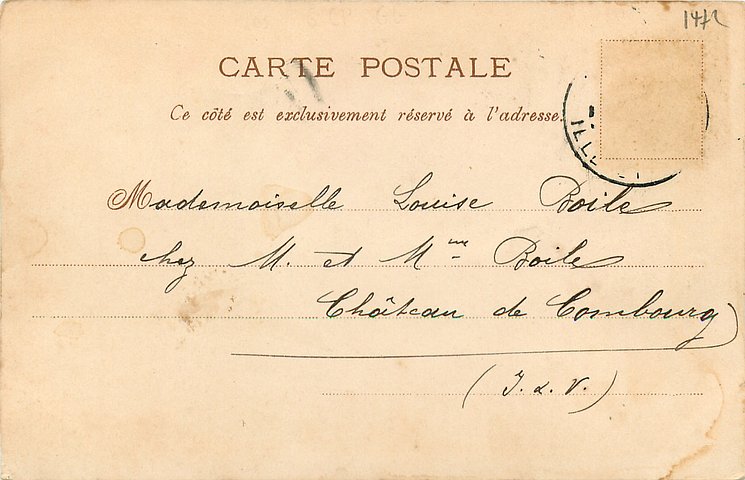 1472
CARTE POSTALE
Ce côté est exclusivement réservé à l'adresse.
ILLE
Mademoiselle Louise Boile
chez M. et Mme Boile
Château de Combourg
(I. & V.)